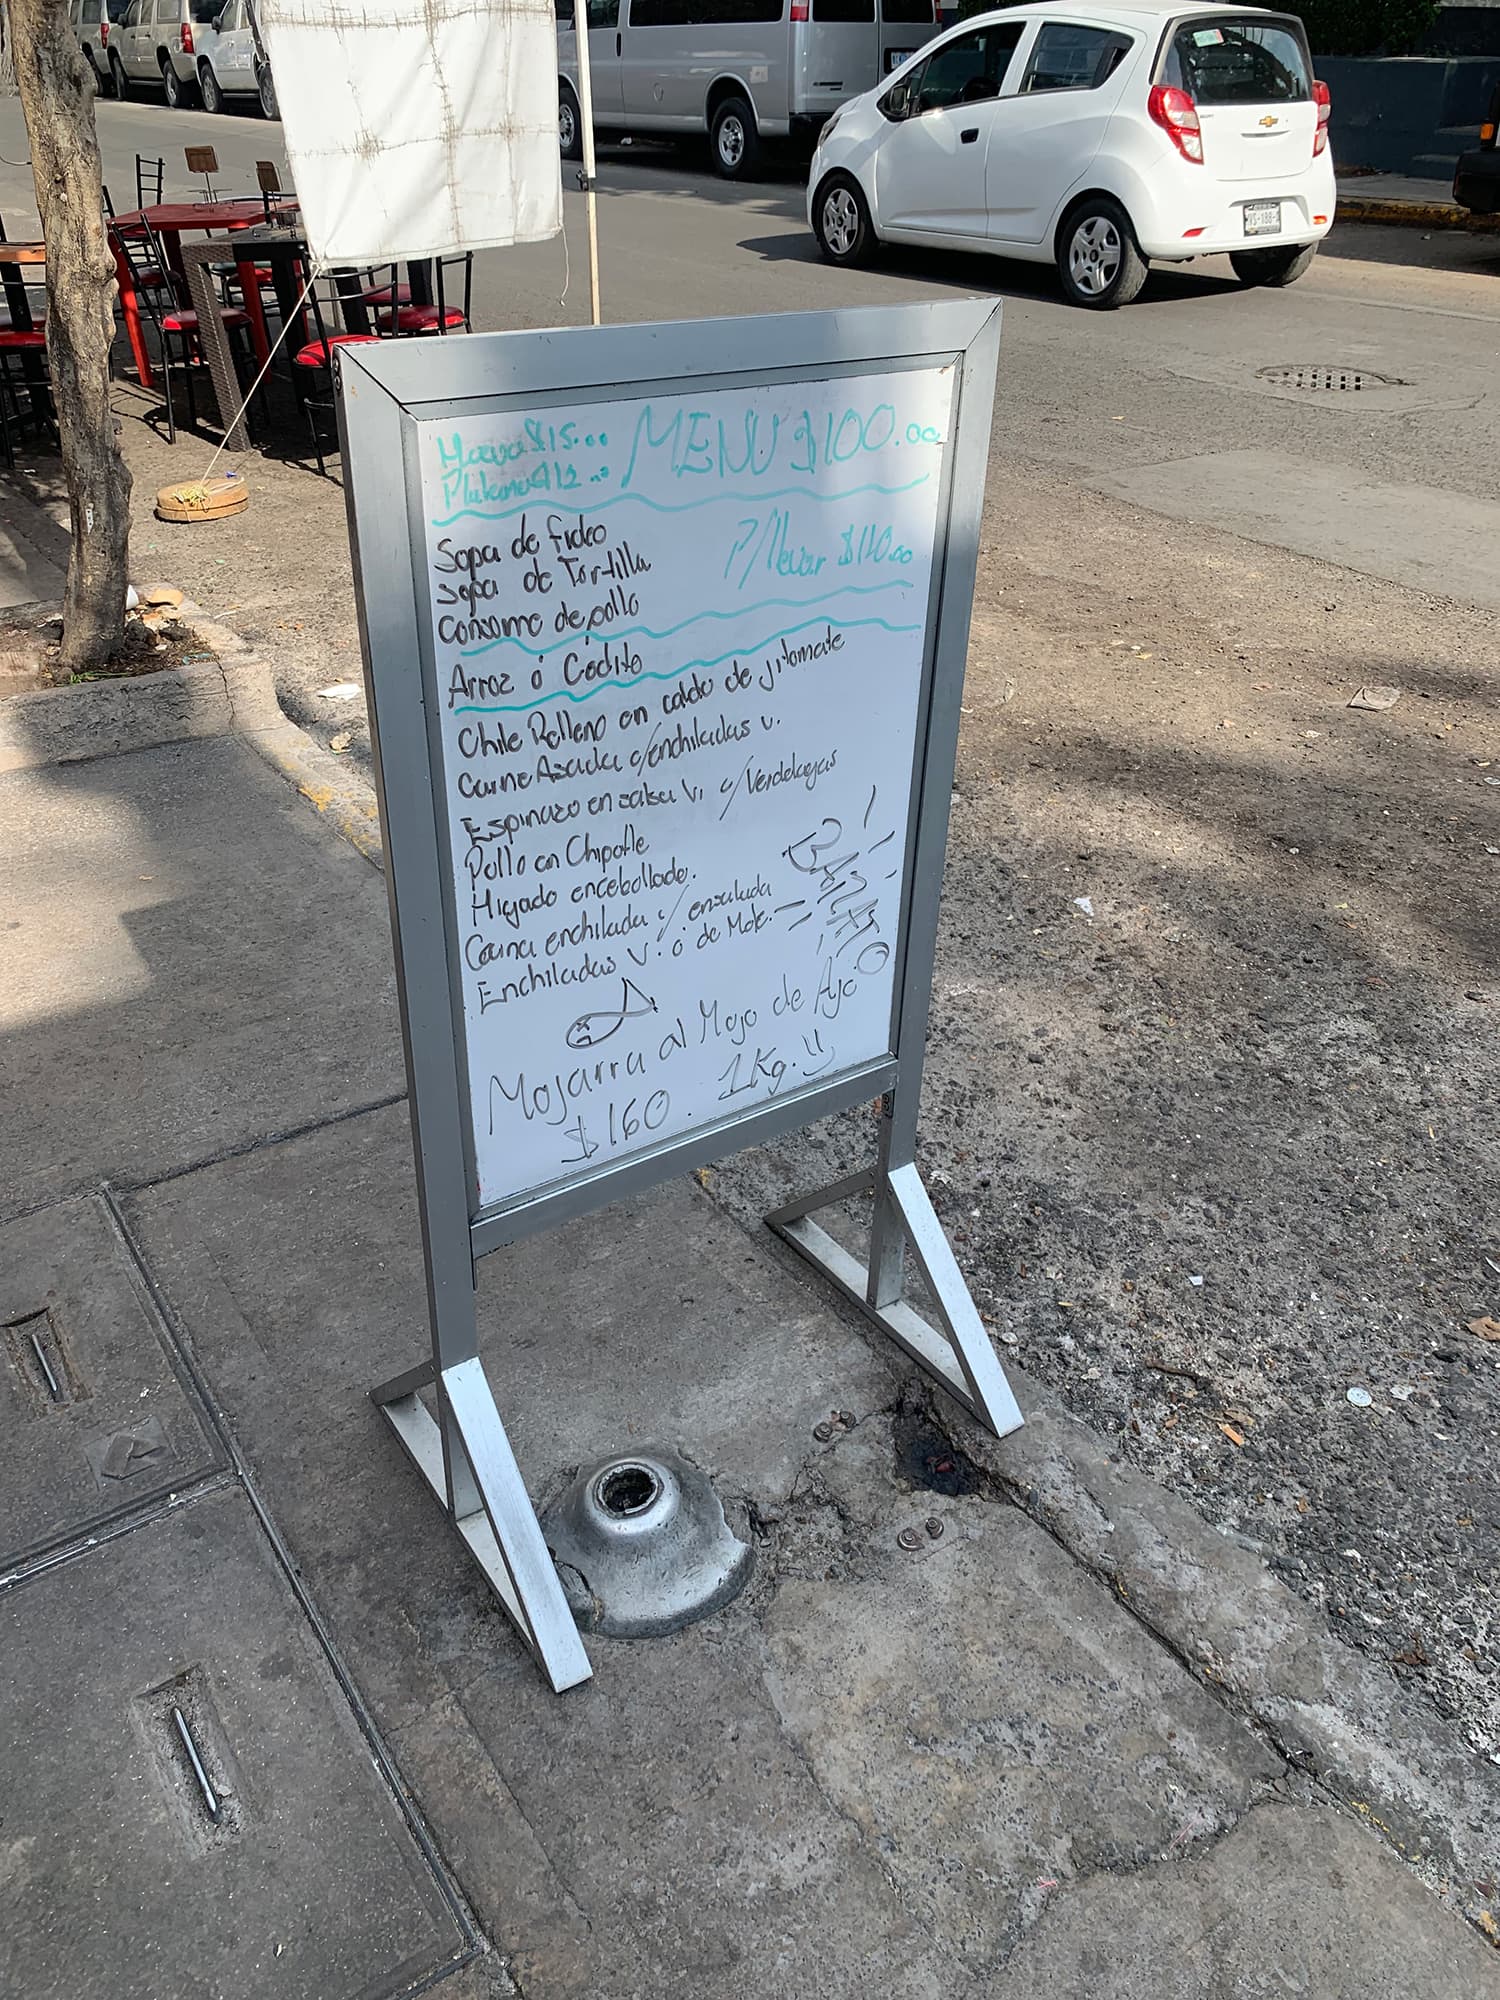 Huevo $15.00
Platano $12.00
MENU $100.00
Sopa de fideo
sopa de Tortilla
Consomo de pollo
P/llevar $110.00
Arroz ó Codito
Chile Relleno en caldo de jitomate
Carne Asada c/enchiladas v.
Espinazo en salsa V. c/Verdolagas
Pollo en Chipotle
Higado encebollado.
Carna enchilada c/ ensalada
Enchiladas V. ó de Mole.
BARATO
Mojarra al Mojo de Ajo
$160. 1Kg.!!